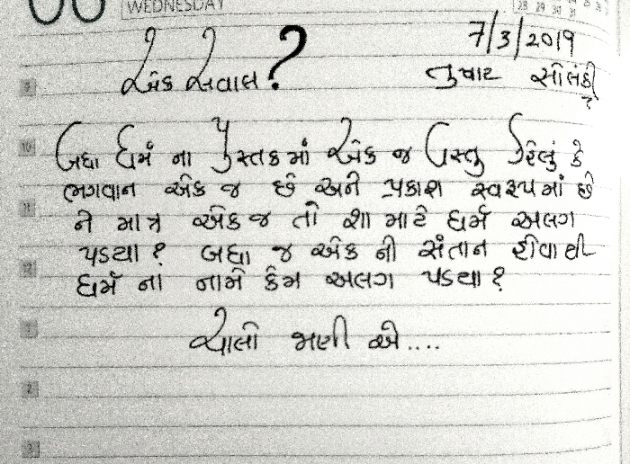 WEDNESDAY
28 29 30 31
7/3/2019
એક સવાલ?
તુષાર સોલંકી
બધા ધર્મ ના પુસ્તકમાં એક જ વસ્તુ કિલું કે
ભગવાન એક જ છે અને પ્રકાશ સ્વરૂપમાં છે
ને માત્ર એકજ તો શા માટે ધર્મ અલગ
પડયા? બધા જ એક ની સંતાન હોવા થી
ધર્મ નાં નામે કેમ અલગ પડયા?
ચાલો ભણી એ....
9
10
11
12
1
2
3